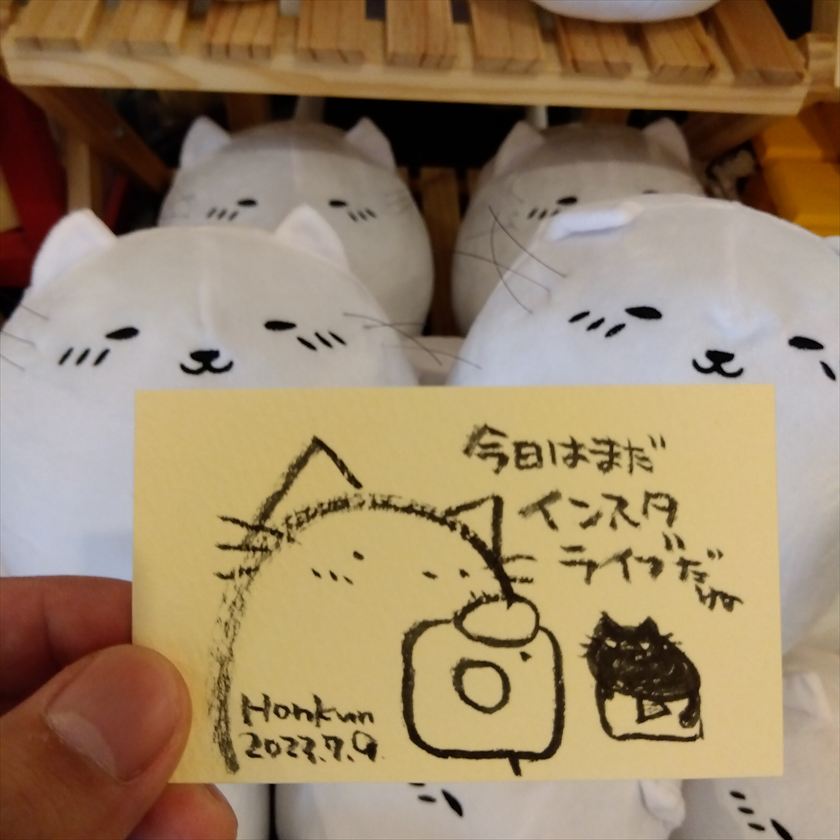 今日はまだ
インスタ
ライブだけね
Honkun
2023.7.9